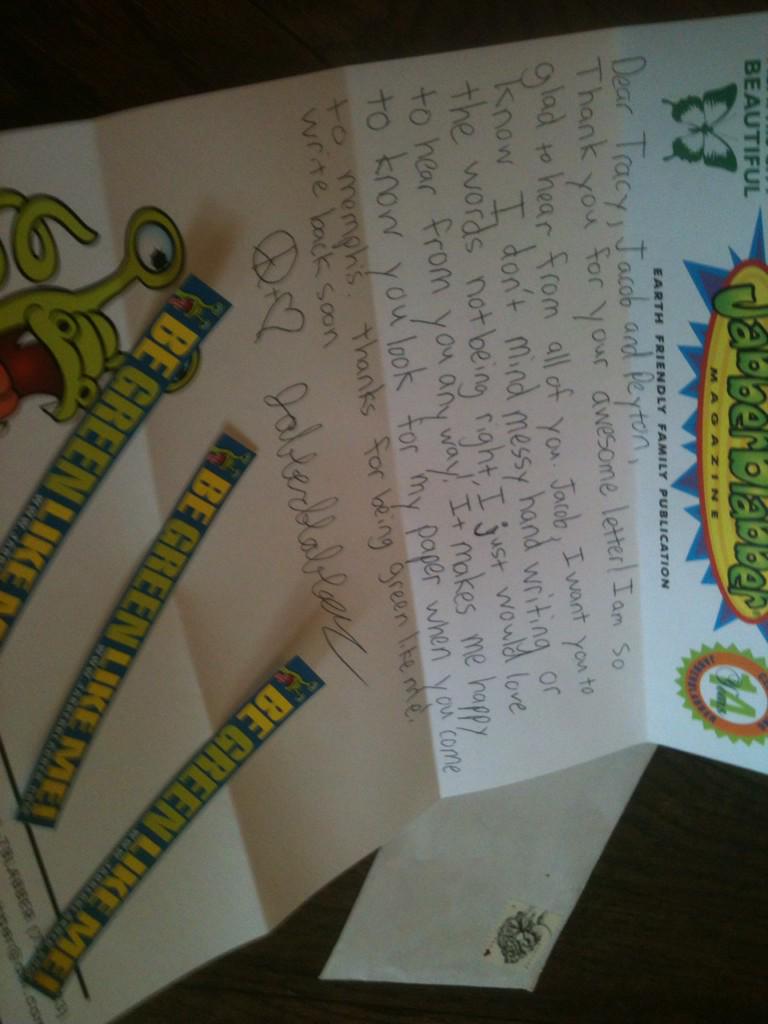 BEAUTIFUL
Jabberblabber
MAGAZINE
EARTH FRIENDLY FAMILY PUBLICATION
14
Years
Dear Tracy, Jacob and Peyton,
Thank you for your awesome letter! I am so
glad to hear from all of you. Jacob, I want you to
know I don't mind messy hand writing or
the words not being right, I just would love
to hear from you any way! It makes me happy
to know you look for my paper when you come
to memphis. thanks for being green like me.
write back soon
Jabberblabber
BE GREEN LIKE M
BE GREEN LIKE ME!
BE GREEN LIKE ME!